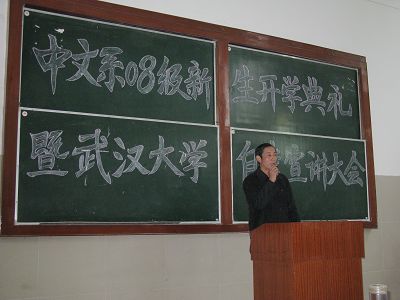 中文系08级新生开学典礼
暨武汉大学自强宣讲大会